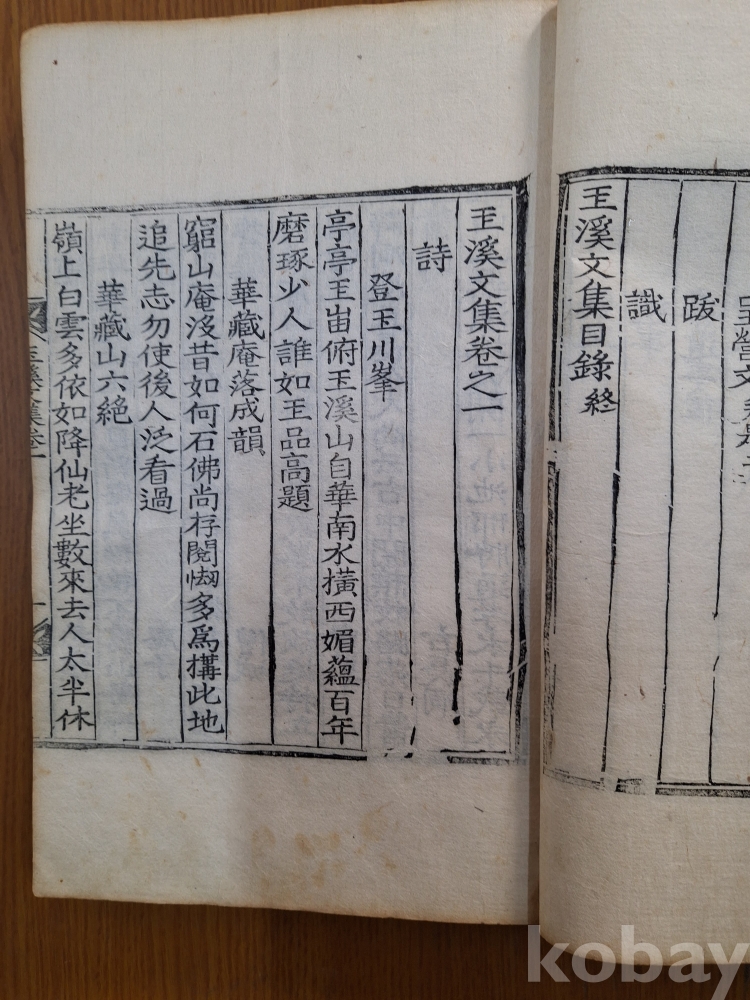 跋
識
玉溪文集目錄 終
玉溪文集卷之一
詩
登玉川峯
亭亭玉峀俯玉溪山自華南水橫西媚蘊百年
磨琢少人誰如玉品高題
華藏庵落成韻
窮山庵沒昔如何石佛尚存閱多爲搆此地
追先志勿使後人泛看過
華藏山六絕
嶺上白雲多依如降仙老坐數來去人太半休
kobay